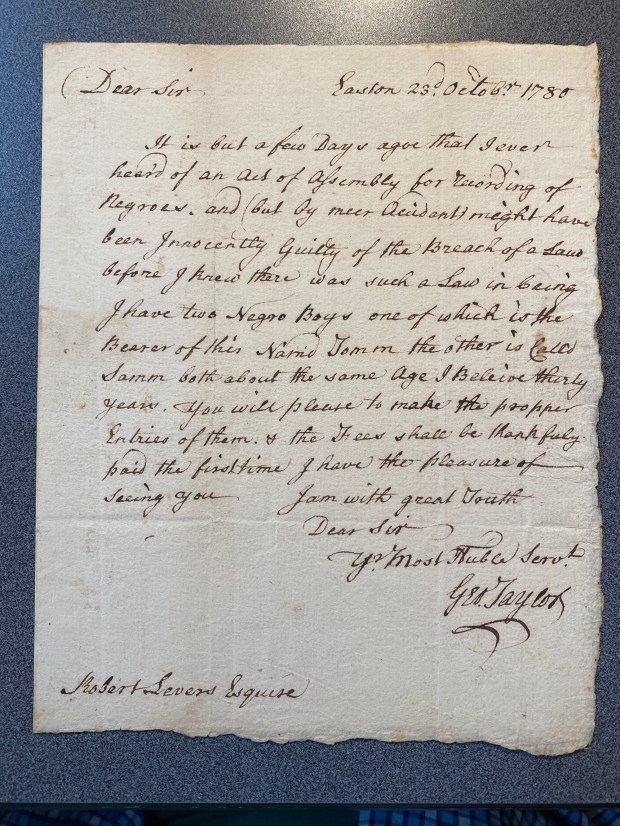 Dear Sir Easton 23d. Octobr. 1780
It is but a few Days agoe that I ever
heard of an Act of Assembly for recording of
Negroes. and (but by meer Acident) meight have
been Innocently Guilty of the Breach of a Law
before I knew there was such a Law in being
I have two Negro Boys one of which is the
Bearer of this Namd Tomm the other is Calld
Samm both about the same Age I Beleive thirty
years. You will please to make the propper
Entries of them. & the Fees shall be thankfuly
paid the first time I have the pleasure of
Seeing you I am with great Truth
Dear Sir
Yr. Most Huble Servt.
Geo. Taylor
Robert Levers Esquire